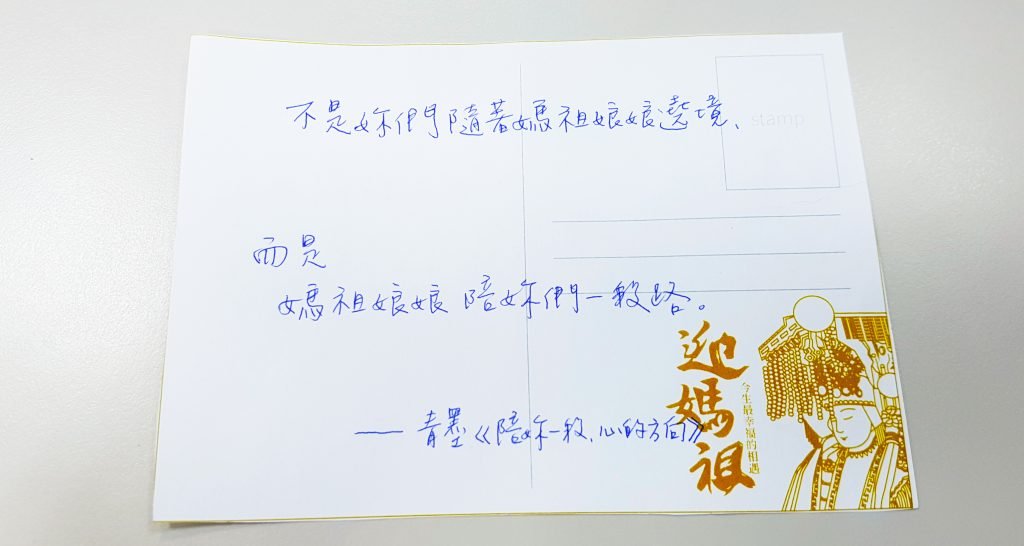 不是妳們隨著媽祖娘娘遶境、
stamp
而是
媽祖娘娘陪妳們一段路。
—— 青墨《陪妳一段、心的方向》
迎媽祖
今生最幸福的相遇